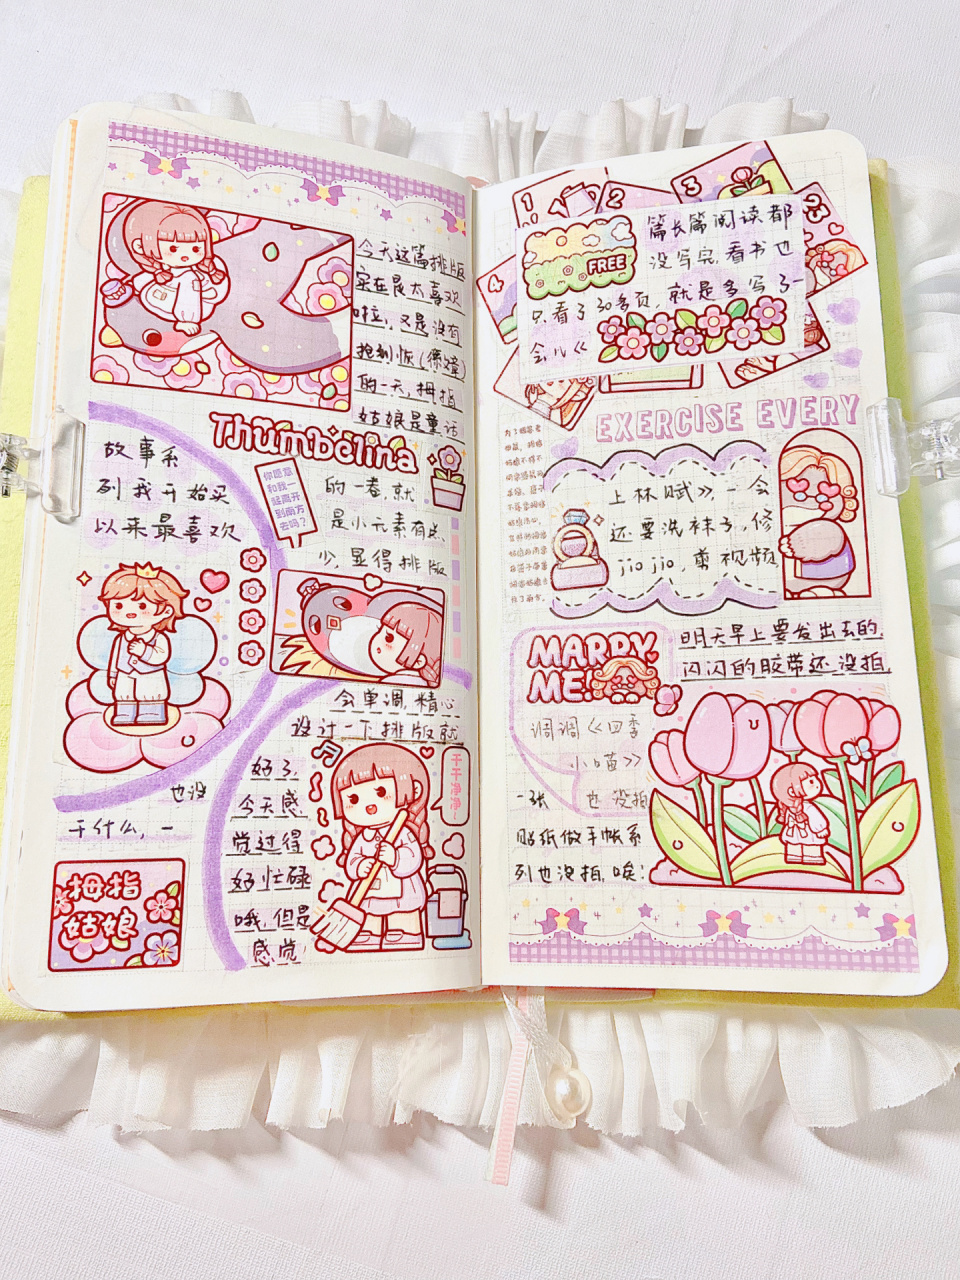 今天这篇排版
实在是太喜欢
啦，又是没有
抢到恢(
的一天，拇指
姑娘是童话
Thumbelina
故事系
列我开始买
以来最喜欢
你愿意
和我一
起离开
到南方
去吗？
的一卷，就
是小元素有点
少，显得排版
会单调，精心
设计一下排版就
好了，
今天感
觉过得
好忙碌
哦，但是
感觉
干干净净~
也没
干什么，一
拇指
姑娘
1
2
3
4
FREE
篇长篇阅读都
没写完，看书也
只看了30多页，就是多写了一
会儿《
EXERCISE EVERY
上林赋》，一会
还要洗袜子，修
jiojio，剪视频，
MARRY
ME
明天早上要发出去的，
闪闪的胶带还没拍，
调调《四季
小喵》
一张 也没拍
贴纸做手帐系
列也没拍，唉！